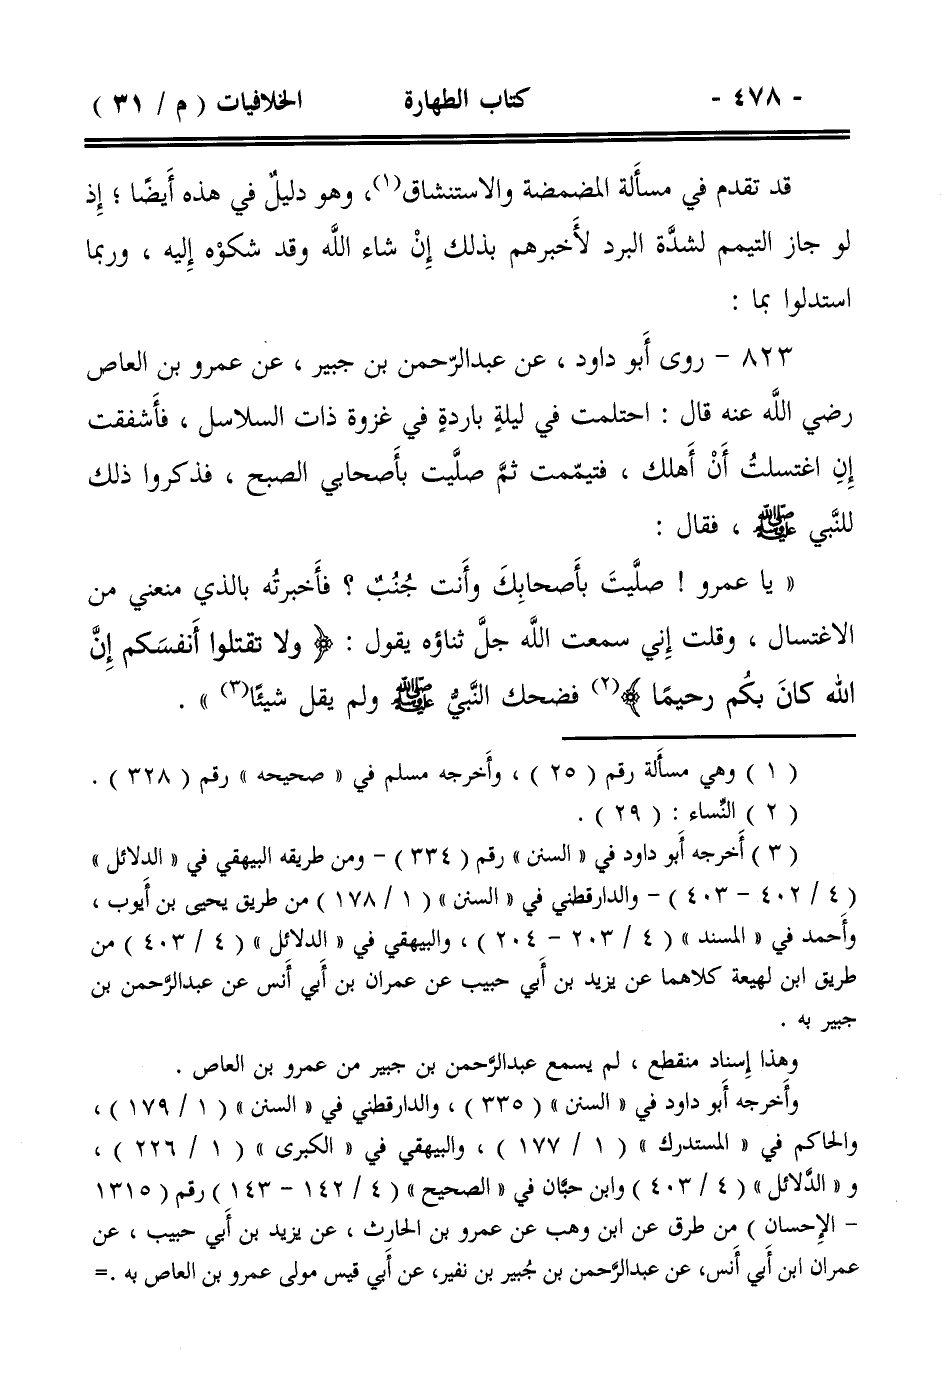 - ٤٧٨ - كتاب الطهارة الخلافيات ( م / ٣١ )
قد تقدم في مسألة المضمضة والاستنشاق(١)، وهو دليلٌ في هذه أَيضًا ؛ إِذ
لو جاز التيمم لشدَّة البرد لأَخبرهم بذلك إِنْ شاء اللَّه وقد شكوْه إِليه ، وربما
استدلوا بما :
٨٢٣ - روى أَبو داود ، عن عبدالرّحمن بن جبير ، عن عمرو بن العاص
رضي اللَّه عنه قال : احتلمت في ليلةٍ باردةٍ في غزوة ذات السلاسل ، فأَشفقت
إِنِ اغتسلتُ أَنْ أَهلك ، فتيمّمت ثمَّ صلَّيت بأَصحابي الصبح ، فذكروا ذلك
للنَّبي ﷺ ، فقال :
« يا عمرو ! صلَّيتَ بأَصحابِكَ وأَنت جُنُبٌ ؟ فأَخبرتُه بالذي منعني من
الاغتسال ، وقلت إِني سمعت اللَّه جلَّ ثناؤه يقول : ﴿ ولا تقتلوا أَنفسَكم إِنَّ
الله كانَ بكُم رحيمًا ﴾(٢) فضحك النَّبيُّ ﷺ ولم يقل شيئًا(٣) » .
( ١ ) وهي مسأَلة رقم ( ٢٥ ) ، وأَخرجه مسلم في « صحيحه » رقم ( ٣٢٨ ) .
( ٢ ) النِّساء : ( ٢٩ ) .
( ٣ ) أَخرجه أَبو داود في « السنن » رقم ( ٣٣٤ ) - ومن طريقه البيهقي في « الدلائل »
( ٤ / ٤٠٢ - ٤٠٣ ) - والدارقطني في « السنن » ( ١ / ١٧٨ ) من طريق يحيى بن أَيوب ،
وأَحمد في « المسند » ( ٤ / ٢٠٣ - ٢٠٤ ) ، والبيهقي في « الدلائل » ( ٤ / ٤٠٣ ) من
طريق ابن لهيعة كلاهما عن يزيد بن أَبي حبيب عن عمران بن أَبي أَنس عن عبدالرَّحمن بن
جبير به .
وهذا إِسناد منقطع ، لم يسمع عبدالرَّحمن بن جبير من عمرو بن العاص .
وأَخرجه أَبو داود في « السنن » ( ٣٣٥ ) ، والدارقطني في « السنن » ( ١ / ١٧٩ ) ،
والحاكم في « المستدرك » ( ١ / ١٧٧ ) ، والبيهقي في « الكبرى » ( ١ / ٢٢٦ ) ،
و « الدَّلائل » ( ٤ / ٤٠٣ ) وابن حبَّان في « الصحيح » ( ٤ / ١٤٢ - ١٤٣ ) رقم ( ١٣١٥
- الإِحسان ) من طرق عن ابن وهب عن عمرو بن الحارث ، عن يزيد بن أَبي حبيب ، عن
عمران ابن أَبي أَنس، عن عبدالرَّحمن بن جُبير بن نفير، عن أَبي قيس مولى عمرو بن العاص به .=